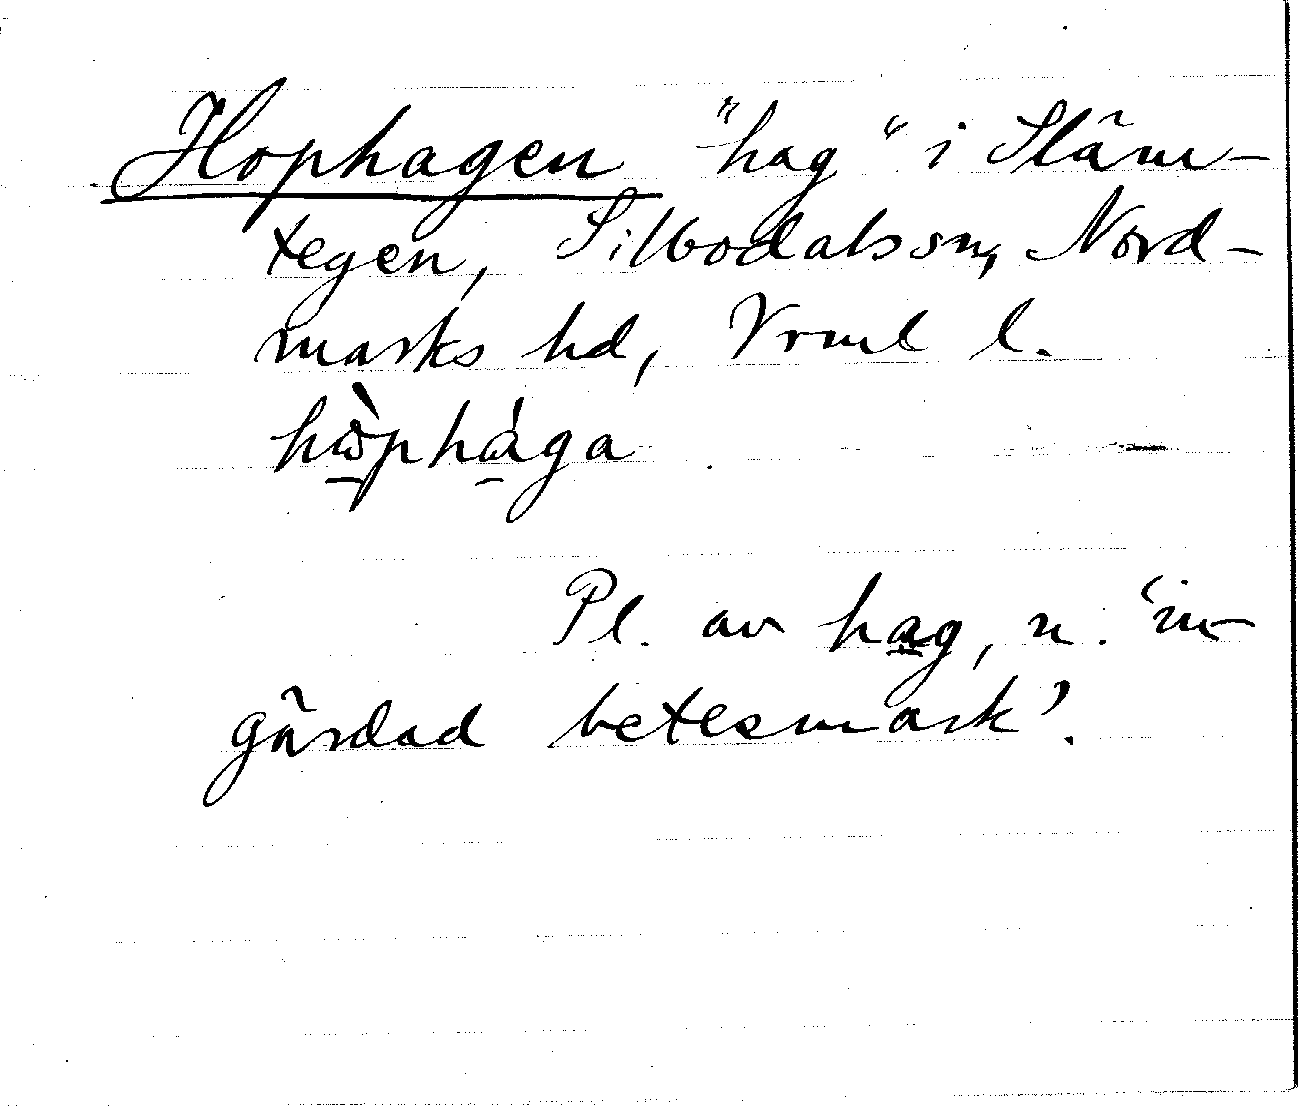 Hophagen "hag" i Släm-
tegen, Silbodals sn, Nord-
marks hd, Vrml l.
hòphága
Pl. av hag, n. 'in-
gärdad betesmark'.